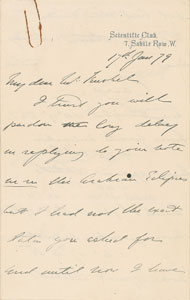 Scientific Club,
7, Savile Row, W.
17th Jan 79
My dear Mr.
I trust you will
pardon the long delay
in replying to your note
in re the Arabian Eclipses
but I had not the exact
data you asked for
and until now I have